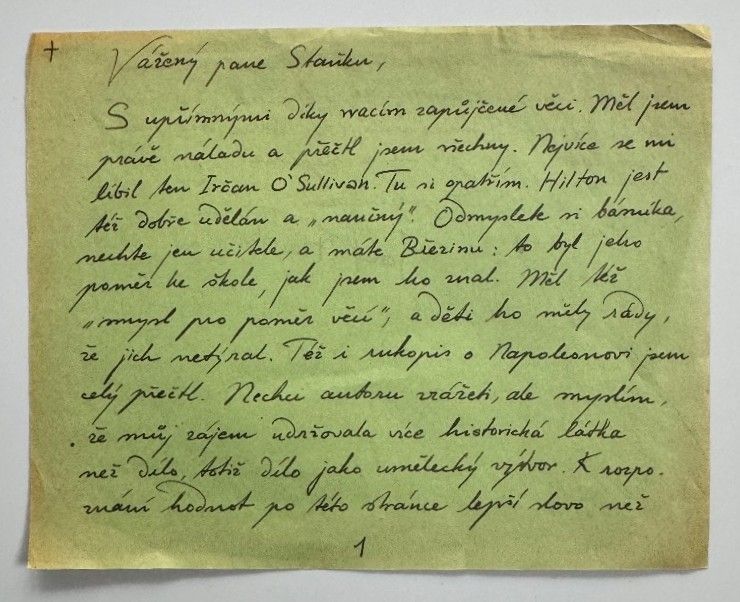 +
Vážený pane Staňku,
S upřímnými díky vracím zapůjčené věci. Měl jsem
právě náladu a přečtl jsem všechny. Nejvíce se mi
líbil ten Irčan O'Sullivan. Tu si opatřím. Hilton jest
též dobře udělán a „naučný". Odmyslete si básníka,
nechte jen učitele, a máte Březinu: to byl jeho
poměr ke škole, jak jsem ho znal. Měl též
„smysl pro poměr věcí", a děti ho měly rády,
že jich netýral. Též i rukopis o Napoleonovi jsem
celý přečtl. Nechci autoru urážeti, ale myslím,
že můj zájem udržovala více historická látka
než dílo, totiž dílo jako umělecký výtvor. K rozpo-
znání hodnot po této stránce lepší slovo než
1